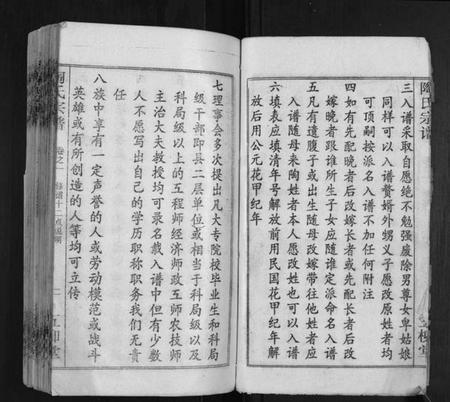 陶氏宗谱
三入谱采取自愿绝不勉强废除男尊女卑姑娘
同样可以入谱赘婿外甥义子愿改原姓者均
可顶嗣按派名入谱不加任何附注
四如有先配晚者后改嫁长者或先配长者后改
嫁晚者跟谁所生子女应随谁定派命名入谱
五凡有遗腹子或出生随母改嫁带往他姓者应
入谱随母来陶姓者本人愿改姓也可以入谱
六填表应填清年号解放前用民国花甲纪年解
放后用公元花甲纪年
七理事会多次提出凡大专院校毕业生和科局
级干部即县二层单位或相当于科局级以及
科局级以上的工程师经济师政工师农技师
主治大夫教授均可录名载入谱中但有少数
人不愿写出自己的学历职称职务我们无责
任
八族中享有一定声誉的人或劳动模范或战斗
英雄或有所创造的人等均可立传
陶氏宗谱
卷之一
修谱十二点说明